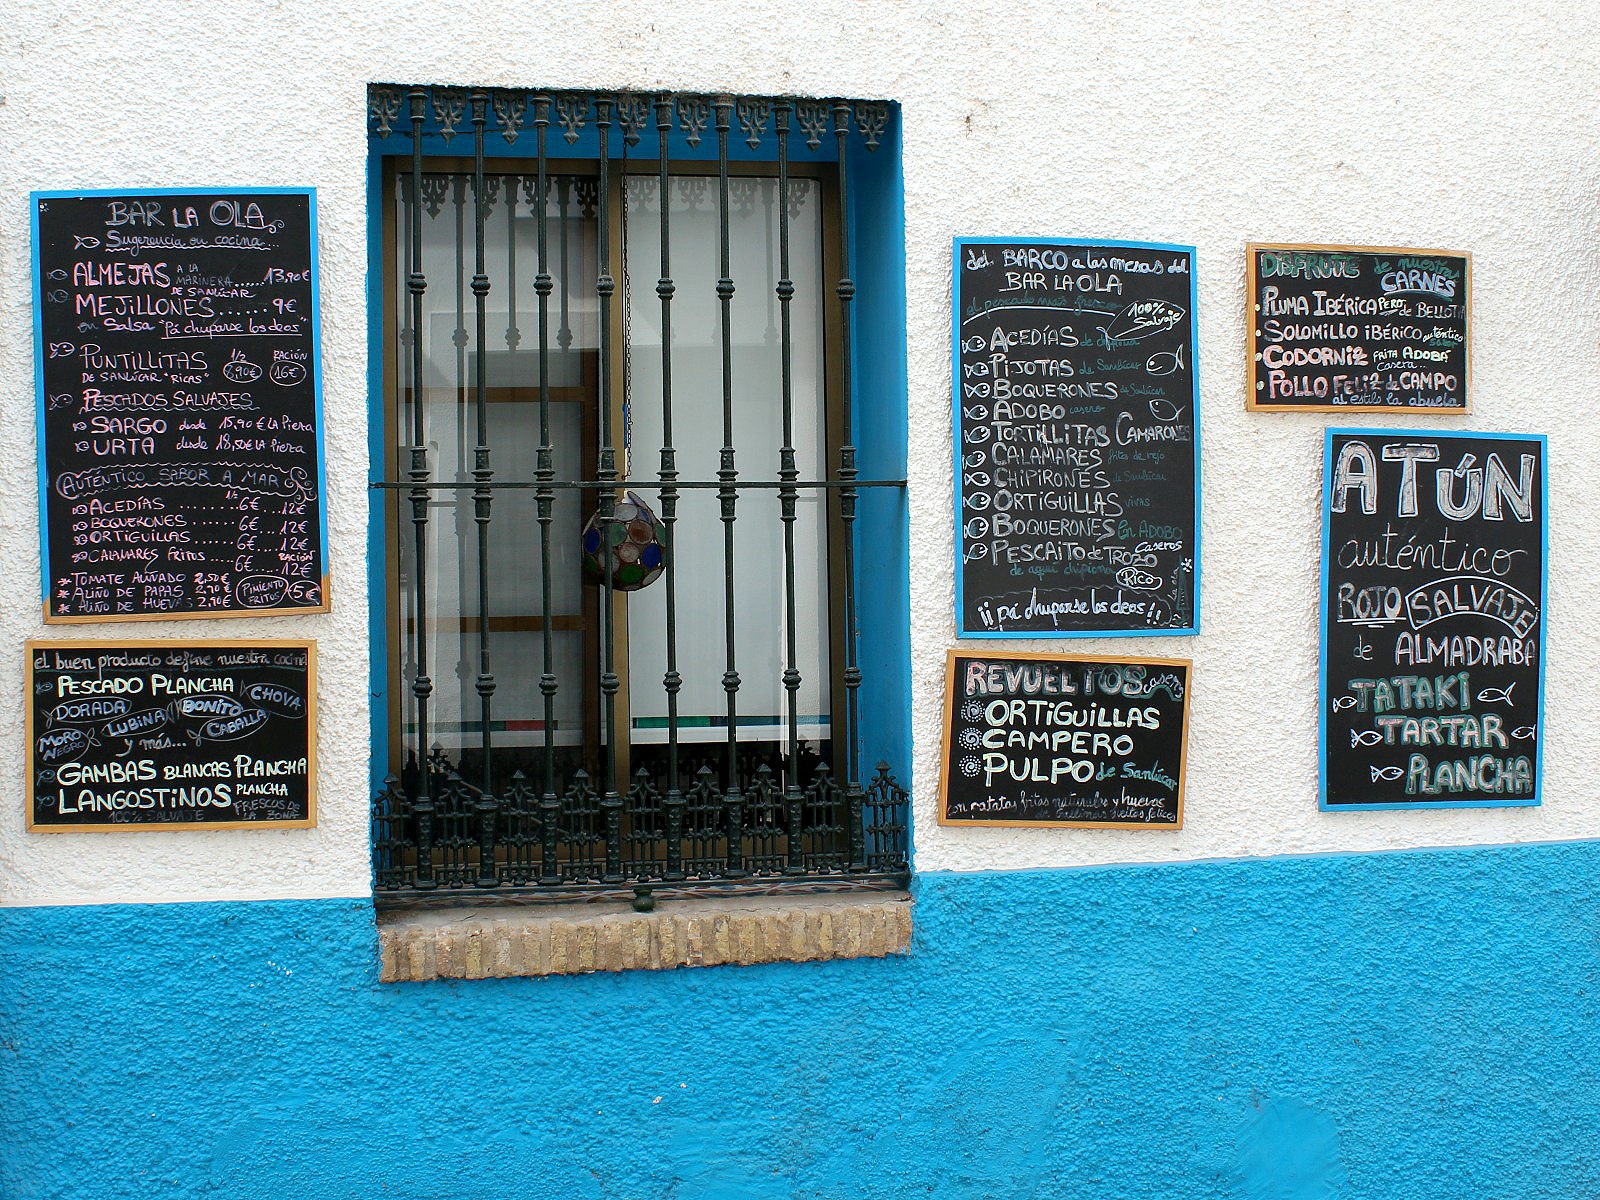 BAR LA OLA
Sugerencia en cocina...
ALMEJAS A LA
MARINERA...... 13,90€
DE SANLÚCAR
MEJILLONES...... 9€
en Salsa "Pá chuparse los deos"
PUNTILLITAS 1/2 RACIÓN
DE SANLÚCAR "RICAS" 8,90€ 16€
PESCADOS SALVAJES
SARGO desde 15,90€ LA Pieza
URTA desde 18,50€ LA Pieza
AUTÉNTICO SABOR A MAR
1/2
ACEDÍAS ...... 6€ ... 12€
BOQUERONES ...... 6€ ... 12€
ORTIGUILLAS ..... 6€ ... 12€
CALAMARES fritos .... 6€ ... 12€
RACIÓN
* TOMATE ALIÑADO 2,50€
* ALIÑO DE PAPAS 2,70€
* ALIÑO DE HUEVAS 2,90€
PIMIENTO FRITOS 5€
el buen producto define nuestra cocina
PESCADO PLANCHA
DORADA LUBINA BONITO CHOVA
MORO NEGRO CABALLA
y más...
GAMBAS BLANCAS PLANCHA
LANGOSTINOS PLANCHA
100% SALVAJE FRESCOS DE
LA ZONA
del BARCO a las mesas del
BAR LA OLA
el pescado más fresco
100%
Salvaje
ACEDÍAS de
PIJOTAS de Sanlúcar
BOQUERONES de Sanlúcar
ADOBO casero
TORTILLITAS CAMARONES
CALAMARES fritos de
CHIPIRONES de Sanlúcar
ORTIGUILLAS VIVAS
BOQUERONES En ADOBO
Caseros
PESCAITO de TROZO
de aquí chipiona Rico
La ola
¡¡ pá chuparse los deos !!
REVUELTOS caseros
ORTIGUILLAS
CAMPERO
PULPO de Sanlúcar
con patatas fritas naturales y huevos
de gallinas sueltas felices
DISFRUTE de nuestra
CARNES
PLUMA IBÉRICA PERO de BELLOTA
SOLOMILLO IBÉRICO auténtico
sabor
CODORNIZ FRITA ADOBÁ
Casera..
POLLO FELIZ de CAMPO
al estilo la abuela
ATÚN
auténtico
ROJO SALVAJE
de ALMADRABA
TATAKI
TARTAR
PLANCHA